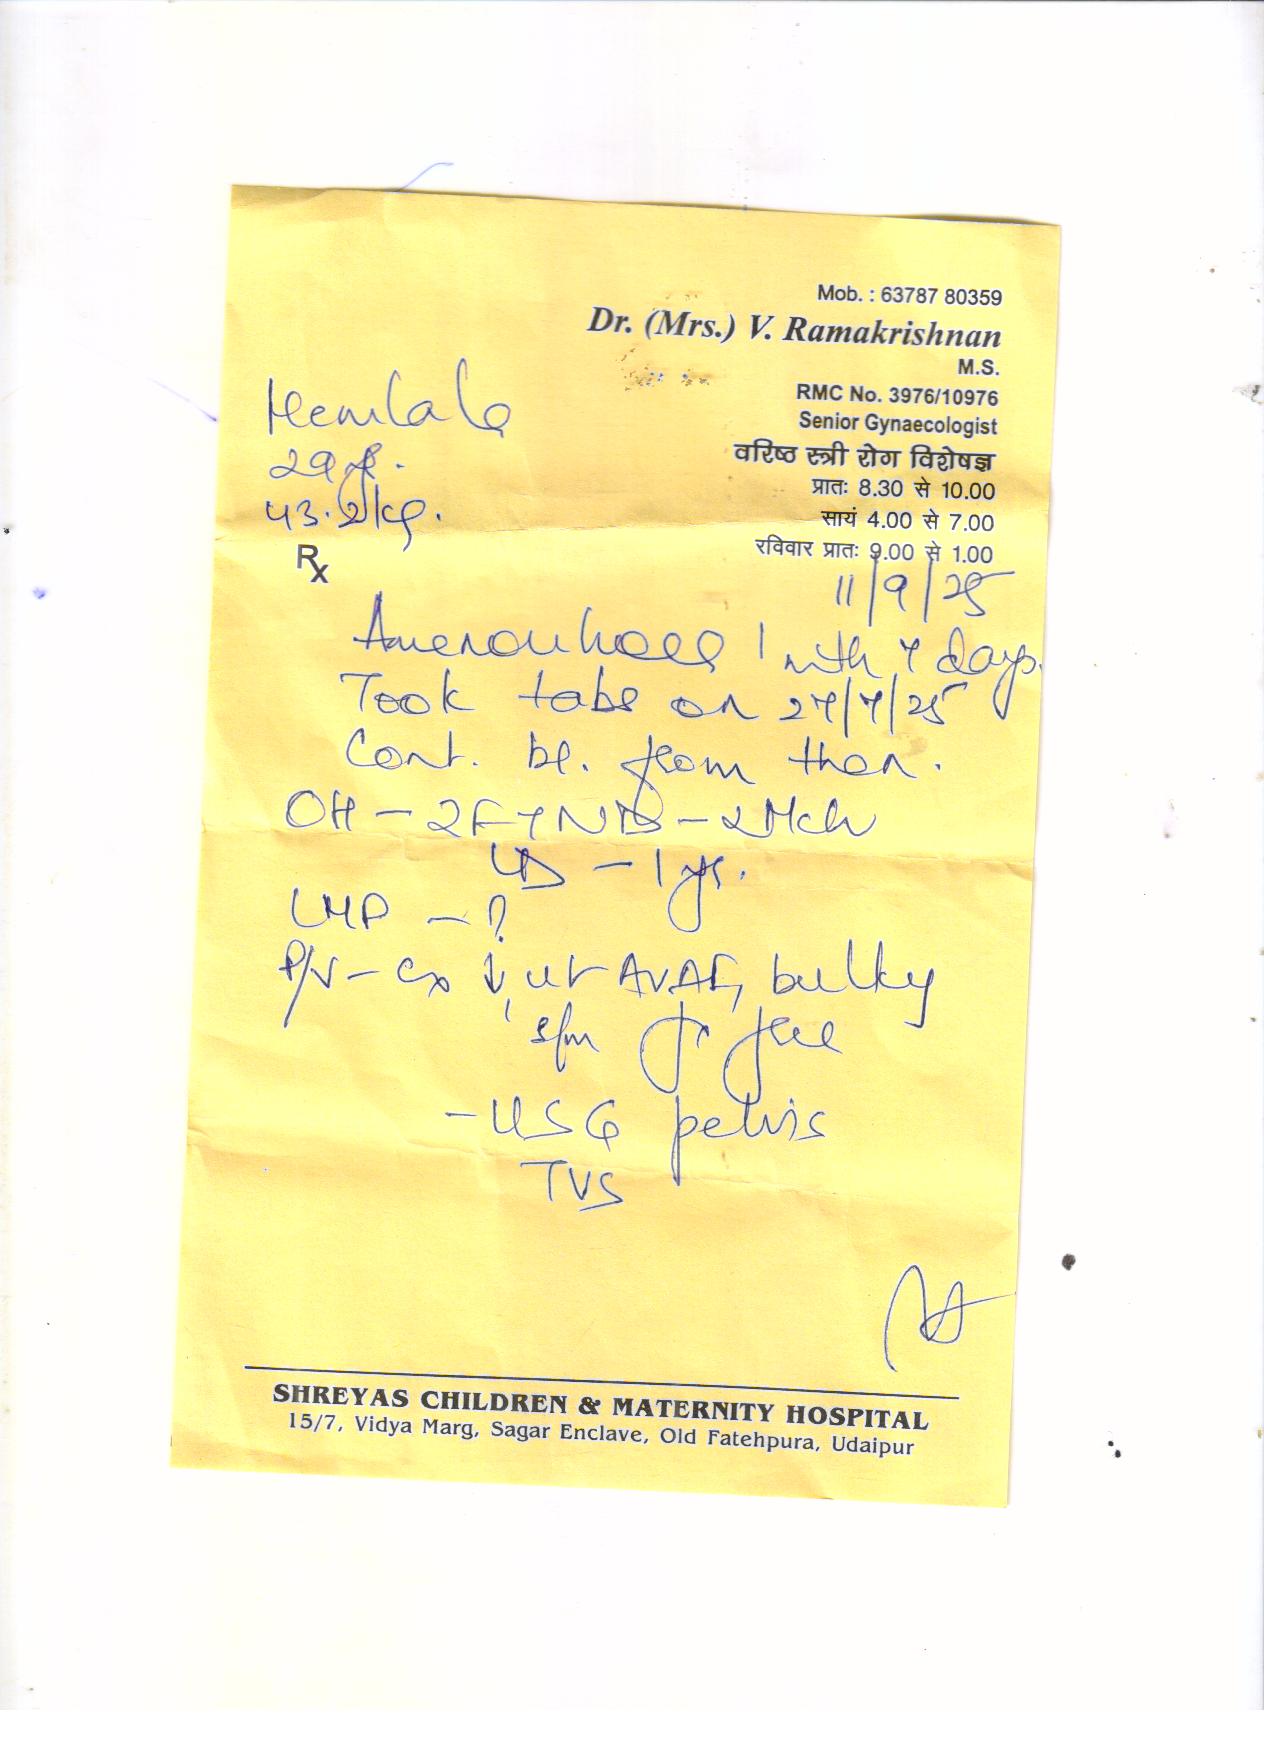 Mob. : 63787 80359
Dr. (Mrs.) V. Ramakrishnan
M.S.
RMC No. 3976/10976
Senior Gynaecologist
वरिष्ठ स्त्री रोग विशेषज्ञ
प्रातः 8.30 से 10.00
सायं 4.00 से 7.00
रविवार प्रातः 9.00 से 1.00
Hemlata
29
53.2 kg.
Rx
11/9/25
Amenorrhoea 1 mth 7 days.
Took tabs on 27/7/25
Cont. bl. from then.
OH - 2FTND - 2Mch
LD - 1 yr.
LMP - ?
P/V - Cx ↓, ut AVAF, bulky
free
- USG pelvis
TVS
SHREYAS CHILDREN & MATERNITY HOSPITAL
15/7, Vidya Marg, Sagar Enclave, Old Fatehpura, Udaipur